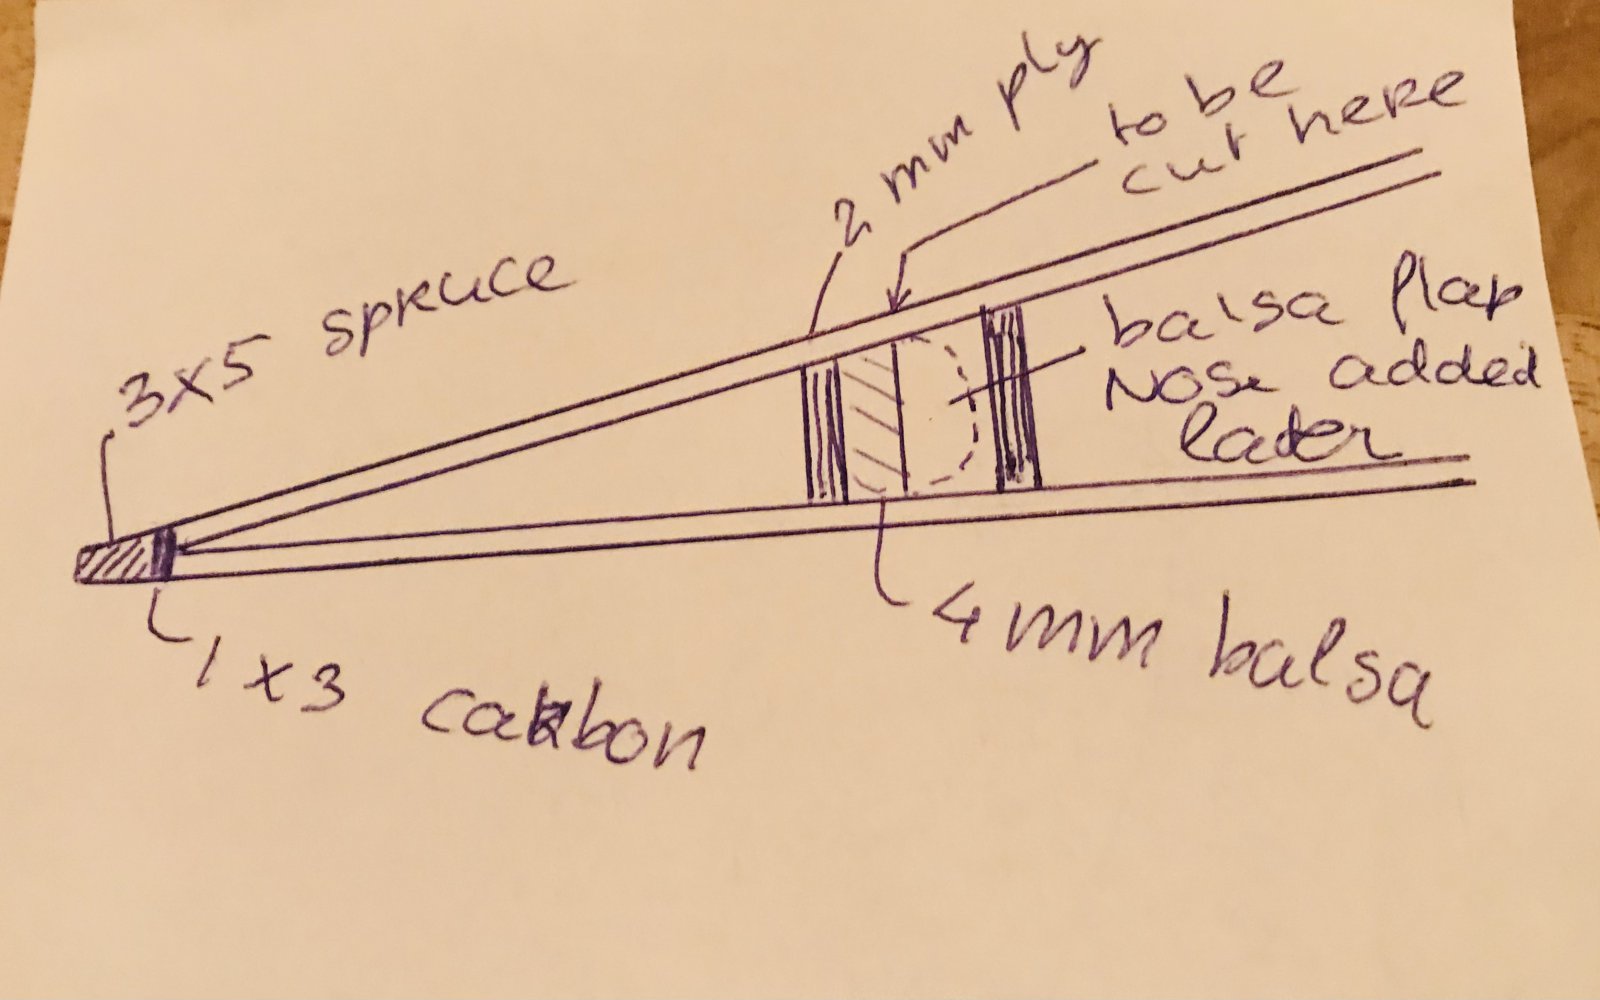 2 mm ply
to be
cut here
3x5 spruce
balsa flap
nose added
later
1 x 3 carbon
4 mm balsa